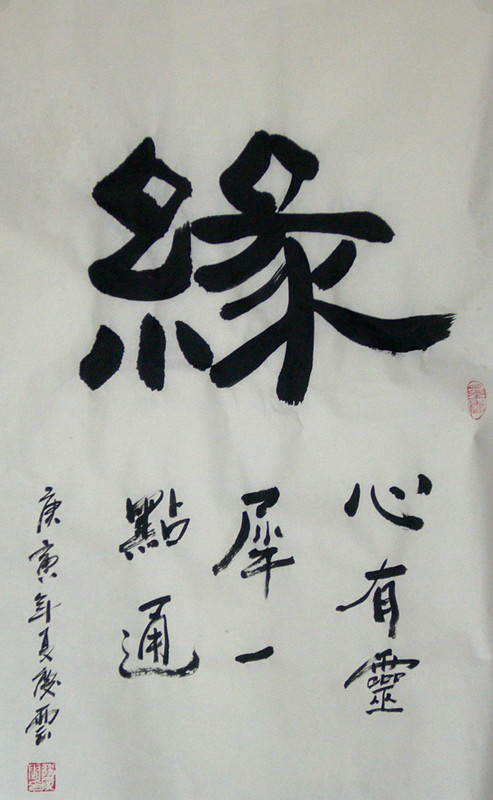 緣
心有靈
犀一
點通
庚寅年夏慶雲